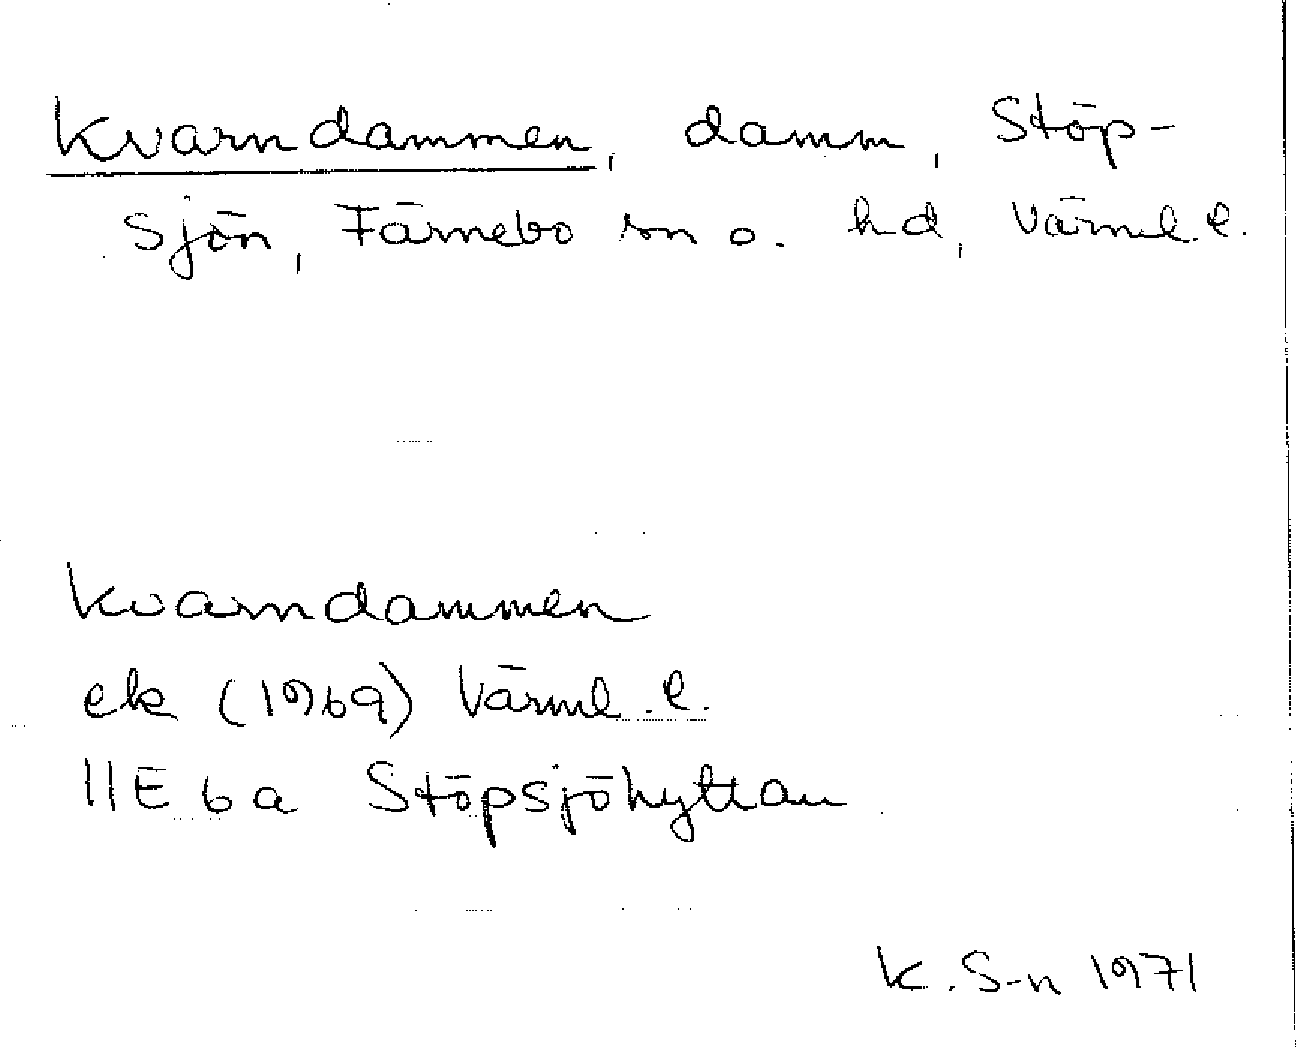 Kvarndammen, damm, Stöp-
sjön, Färnebo sn o. hd, Värml. l.
Kvarndammen
ek (1969) Värml. l.
11E 6a Stöpsjöhyttan
K. S-n 1971